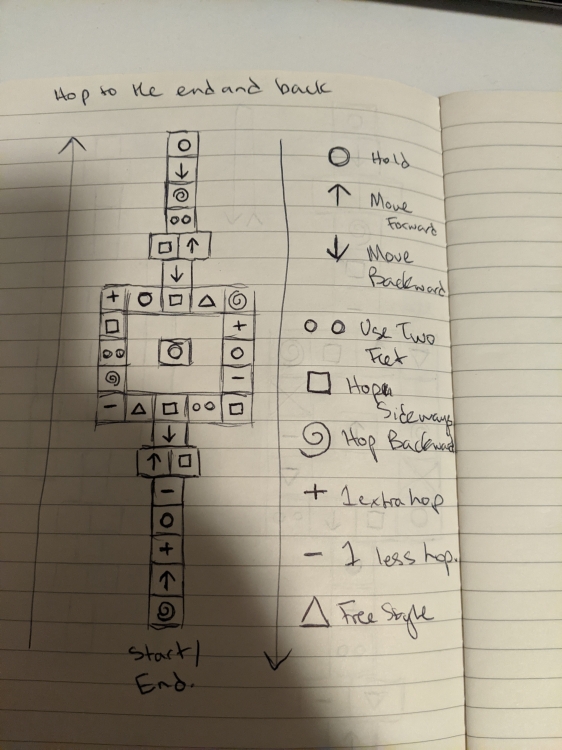 Hop to the end and back
Hold
Move
Forward
Move
Backward
Use Two
Feet
Hop
Sideways
Hop Backward
+ 1 extra hop
- 1 less hop.
Free Style
Start/
End.